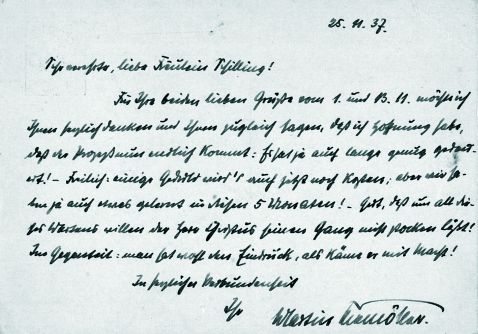 25. 11. 37.
Sehr verehrte, liebe Fräulein Schilling!
Für Ihre beiden lieben Grüße vom 1. und 13. 11. möchte ich
Ihnen herzlich danken und Ihnen zugleich sagen, daß ich Hoffnung habe,
daß der Prozeß nun endlich kommt: Es hat ja auch lange genug gedau-
ert! – Freilich: einige Geduld wird's auch jetzt noch kosten; aber wir ha-
ben ja auch etwas gelernt in diesen 5 Monaten! – Gott, daß um all die-
ses Wartens willen der Herr Christus seinen Gang nicht stocken läßt!
Im Gegenteil: man hat wohl den Eindruck, als käme er mit Macht!
In herzlicher Verbundenheit
Ihr
Martin Niemöller.